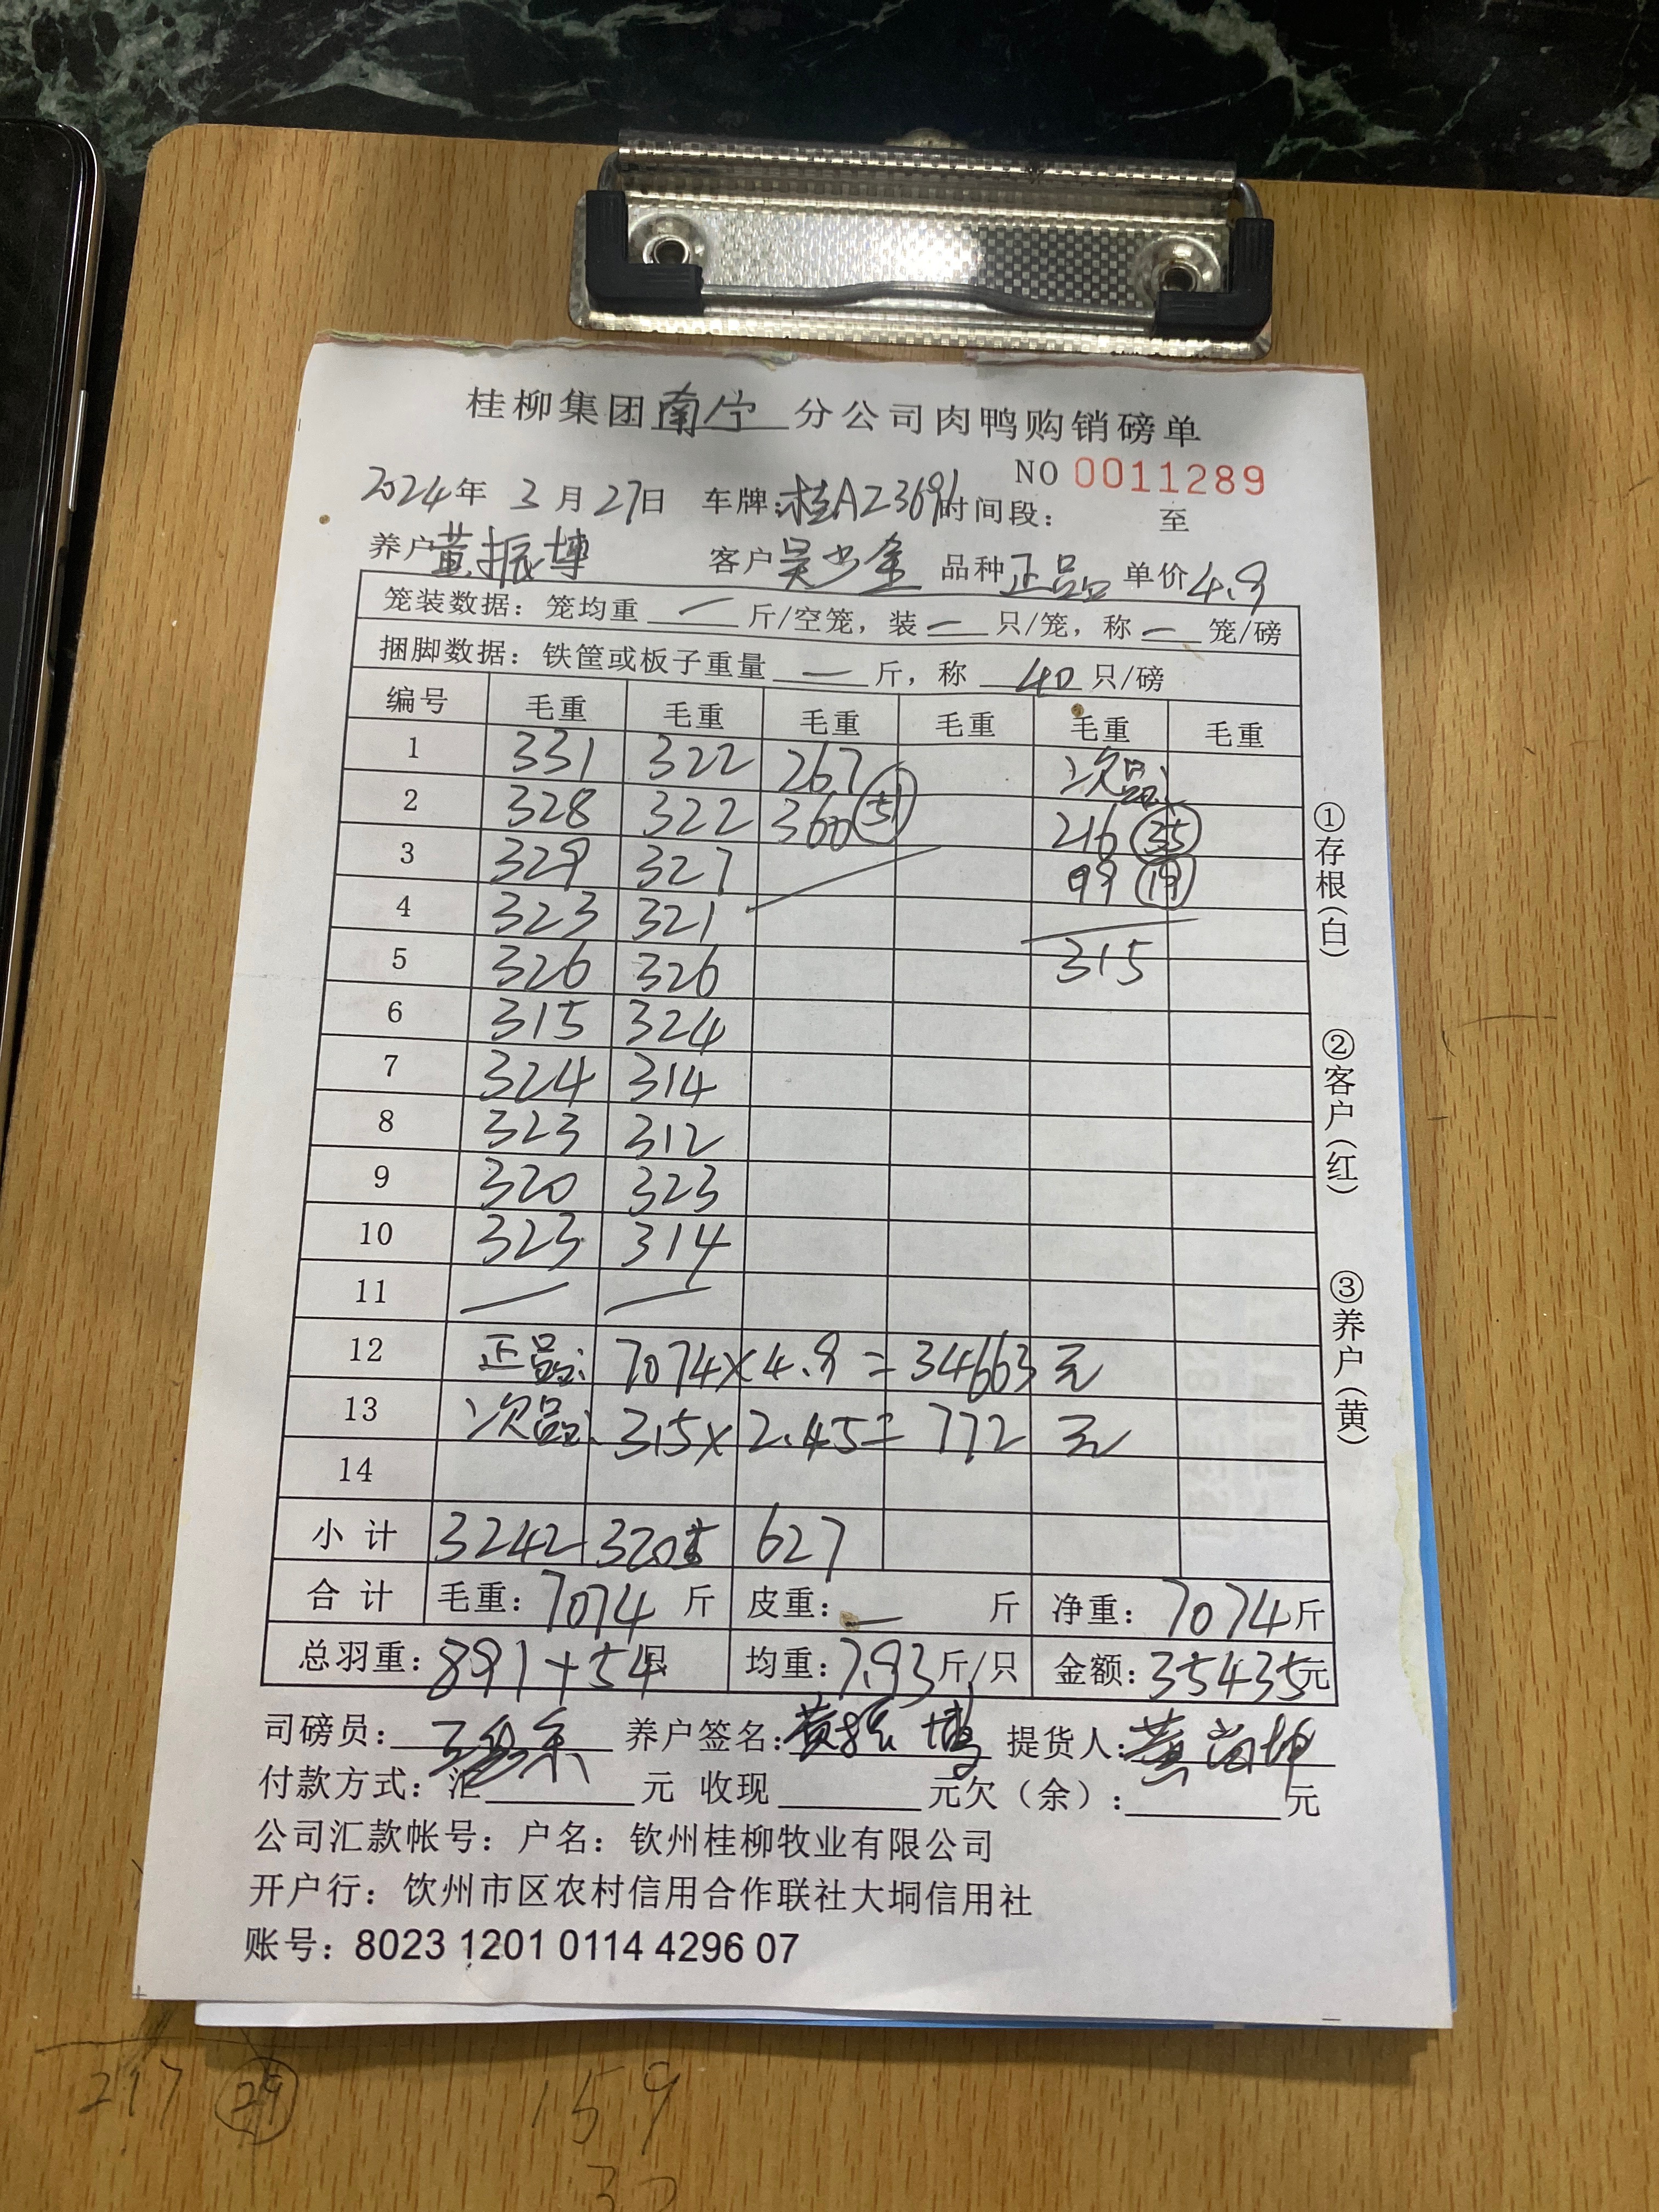 桂柳集团南宁分公司肉鸭购销磅单
NO 0011289
2024年 3月27日 车牌:桂AZ3691 时间段: 至
养户黄振博 客户吴少金 品种正品 单价4.9
笼装数据：笼均重 — 斤/空笼，装 — 只/笼，称 — 笼/磅
捆脚数据：铁筐或板子重量 — 斤，称 40 只/磅
编号 毛重 毛重 毛重 毛重 毛重 毛重
1 331 322 267 次品:
2 328 322 360 51 216 35
3 329 327 99 19
4 323 321
5 326 326 315
6 315 324
7 324 314
8 323 312
9 320 323
10 323 314
11 — —
12 正品: 7074×4.9=34663元
13 次品: 315×2.45=772元
14
小计 3242 3205 627
合计 毛重：7074斤 皮重：— 斤 净重：7074斤
总羽重：891+54只 均重：7.93斤/只 金额：35435元
司磅员： 养户签名：黄振博 提货人：黄尚坤
付款方式：汇 元 收现 元欠（余）： 元
公司汇款帐号：户名：钦州桂柳牧业有限公司
开户行：钦州市区农村信用合作联社大垌信用社
账号：8023 1201 0114 4296 07
①存根(白)
②客户(红)
③养户(黄)
217 29
159